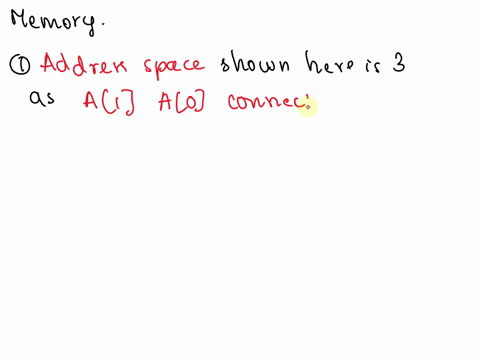 Memory.
① Address space shown here is 3
as A[1] A[0] connec